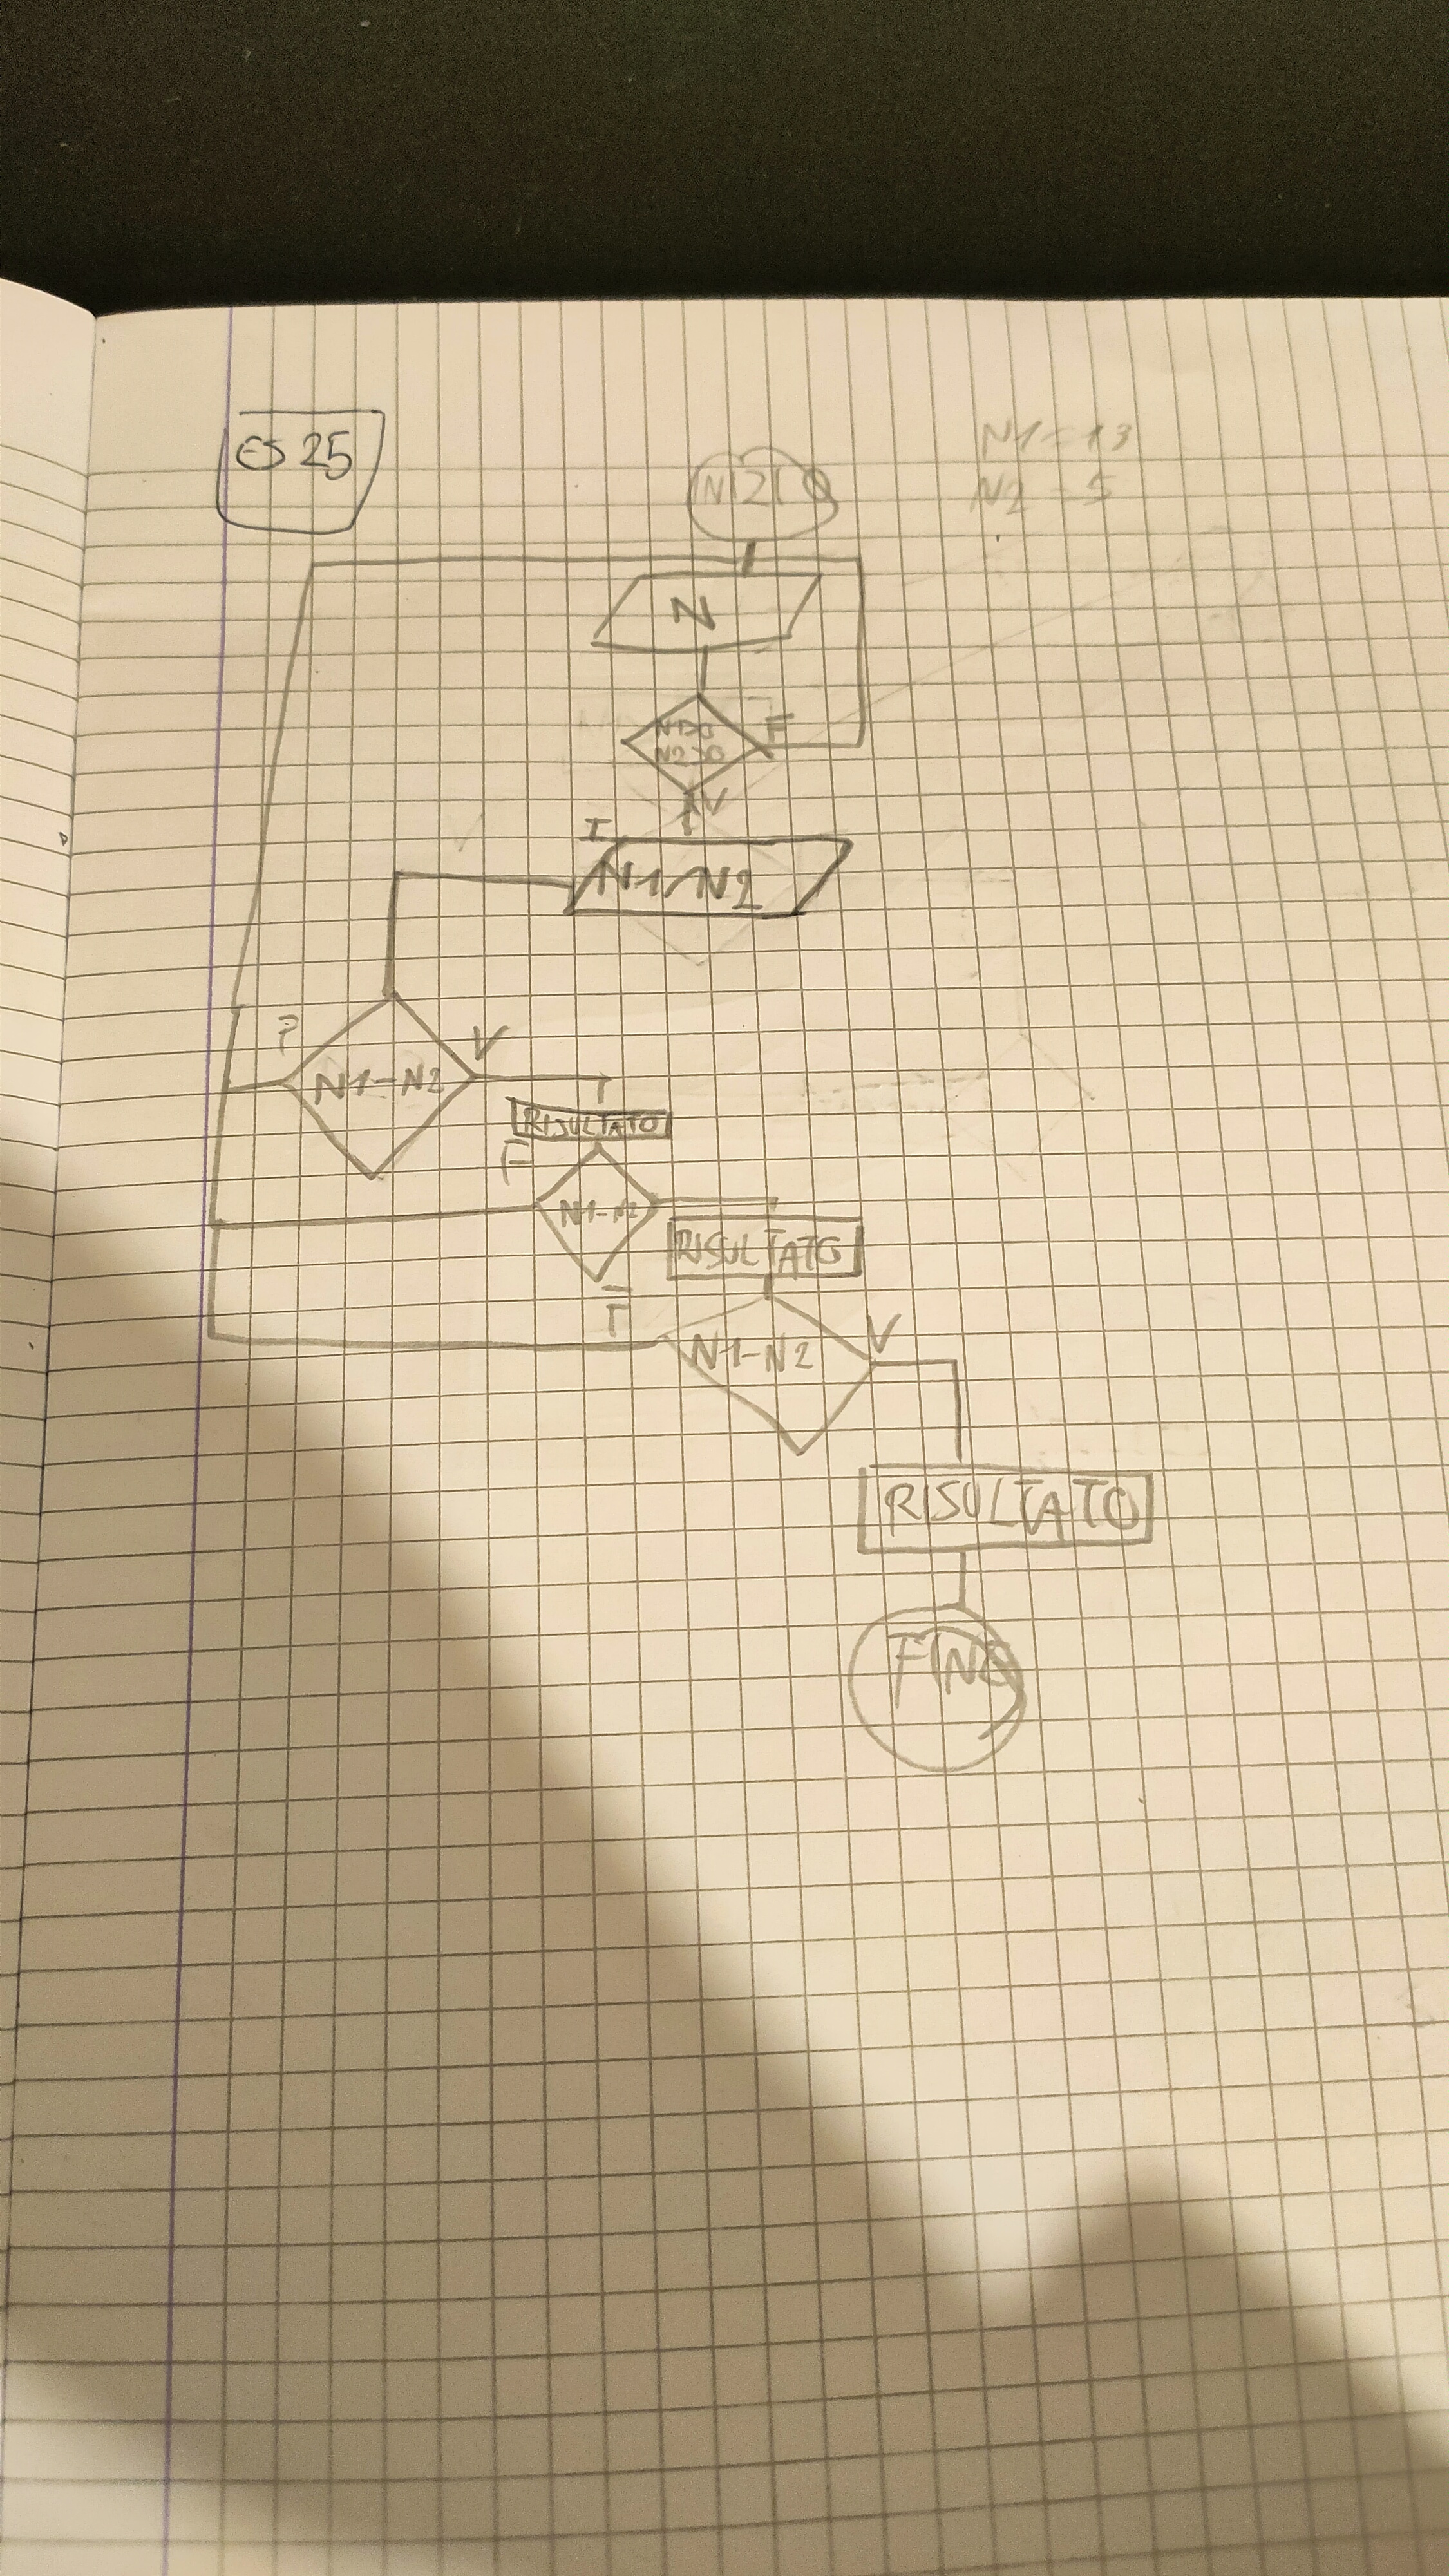 ES 25
N1=13
N2=5
INIZIO
N
N1>0
N2>0
F
V
I
N1,N2
F
N1-N2
V
RISULTATO
F
N1-N2
RISULTATO
F
N1-N2
V
RISULTATO
FINE